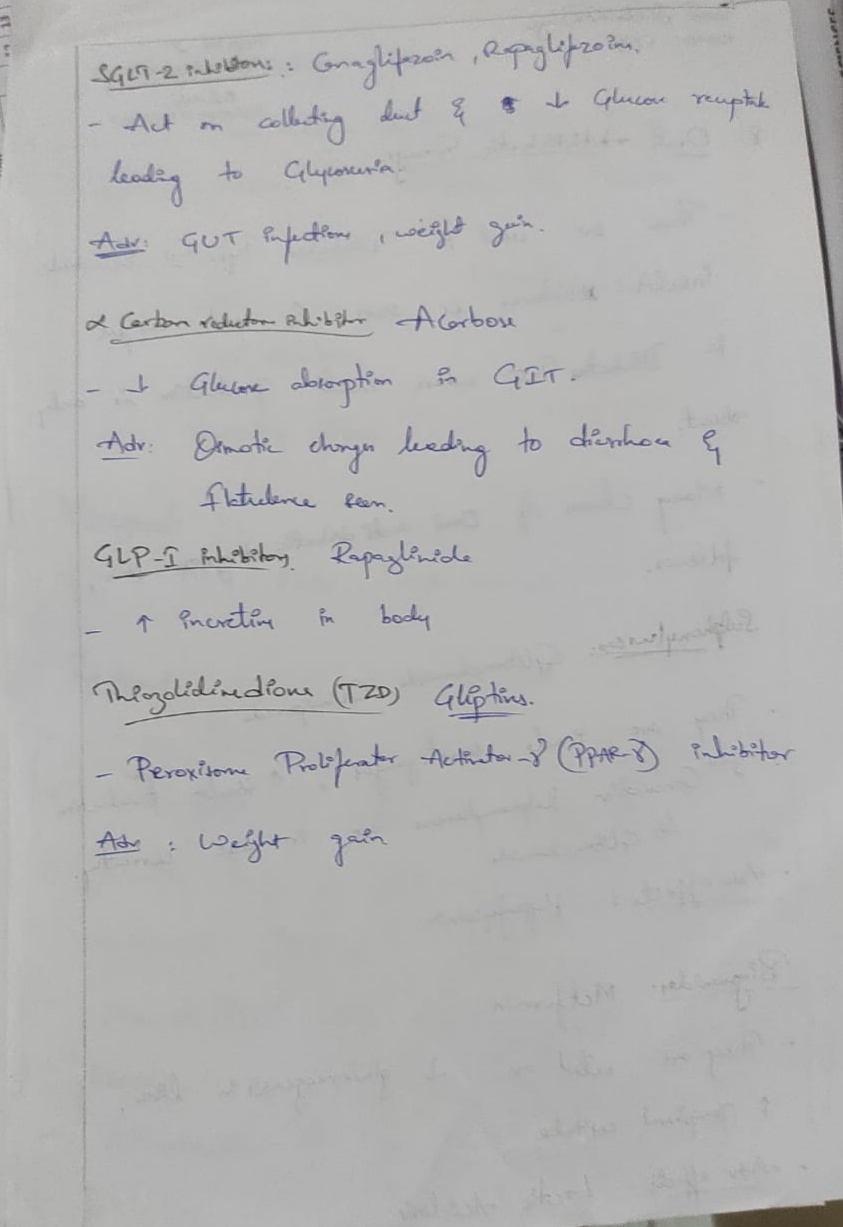 SGLT-2 inhibitors : Canaglifozoin , Rapaglifozoin.
- Act on collecting duct & ↓ Glucose reuptake
leading to Glycosuria.
Adv: GUT infections , weight gain.
α Carbon reductase inhibitor Acarbose
- ↓ Glucose absorption in GIT.
Adv: Osmotic changes leading to diarrhoea &
flatulence seen.
GLP-I inhibitors Rapaglinide
- ↑ incretins in body
Thiazolidinediones (TZD) Gliptins.
- Peroxisome Proliferator Activator-γ (PPAR-γ) inhibitor
Adv : Weight gain